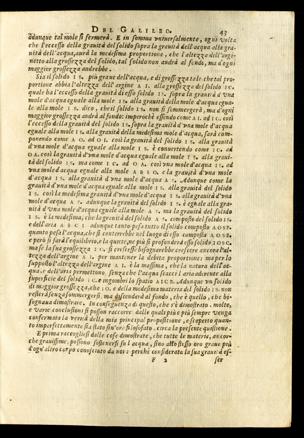 DEL GALILEO. 43
adunque tal mole si fermerà. E in somma vniuersalmente, ogni volta
che l'eccesso della grauità del solido sopra la grauità dell'acqua alla gra-
uità dell'acqua, aurà la medesima proporzione, che l'altezza dell'argi-
netto alla grossezza del solido, tal solido non andrà al fondo, ma d'ogni
maggior grossezza andrebbe.
Sia il solido IS. più graue dell'acqua, e di grossezza tale che tal pro-
porzione abbia l'altezza dell'argine AI. alla grossezza del solido IO.
quale ha l'eccesso della grauità di esso solido IS. sopra la grauità d'vna
mole d'acqua eguale alla mole IS. alla grauità della mole d'acqua egua-
le alla mole IS. dico, che il solido IS. non si sommergerà, ma d'ogni
maggior grossezza andrà al fondo: imperochè essendo come AI. ad IO. così
l'eccesso della grauità del solido IS. sopra la grauità d'vna mole d'acqua
eguale alla mole IS. alla grauità della medesima mole d'acqua, sarà com-
ponendo come AO. ad OI. così la grauità del solido IS. alla grauità
d'vna mole d'acqua eguale alla mole IS. e conuertendo come IO. ad
OA. così la grauità d'vna mole d'acqua eguale alla mole IS. alla graui-
tà del solido IS. ma come IO. ad OA. così vna mole d'acqua IS. ad
vna mole d'acqua eguale alla mole ABSO. e la grauità d'vna mole
d'acqua IS. alla grauità d'vna mole d'acqua AS. Adunque come la
grauità d'vna mole d'acqua eguale alla mole IS. alla grauità del solido
IS. così la medesima grauità d'vna mole d'acqua IS. alla grauità d'vna
mole d'acqua AS. adunque la grauità del solido IS. è eguale alla gra-
uità d'vna mole d'acqua eguale alla mole AS. ma la grauità del solido
IS. è la medesima, che la grauità del solido AS. composto del solido IS.
e dell'aria ABCI. adunque tanto pesa tutto il solido composto AOSB.
quanto pesa l'acqua, che si conterrebbe nel luogo di esso composto AOSB.
e però si farà l'equilibrio, e la quiete, ne più si profonderà esso solido IOSC.
ma se la sua grossezza IO. si crescesse bisognerebbe crescere ancora l'al-
tezza dell'argine AI. per mantener la debita proporzione: ma per lo
supposto l'altezza dell'argine AI. è la massima, che la natura dell'ac-
qua e dell'aria permettono, senza che l'acqua scacci l'aria aderente alla
superficie del solido IC. e ingombri lo spazio AICB. Adunque vn solido
di maggior grossezza, che IO. e della medesima materia del solido IS. non
resterà senza sommergersi, ma discenderà al fondo, che è quello, che bi-
sognaua dimostrare. In conseguenza di questo, che s'è dimostrato, molte,
e varie conclusioni si posson raccorre dalle quali più e più sempre venga
confermata la verità della mia principal proposizione, e scoperto quan-
to imperfettamente sia stato sin'ora filosofato, circa la presente quistione.
E prima raccogliesi dalle cose dimostrate, che tutte le materie, ancor-
che grauissime, possono sostenersi su l'acqua, sino allo stesso oro graue più
d'ogn'altro corpo conosciuto da noi: perchè considerata la sua graui tà es-
F 2 ser